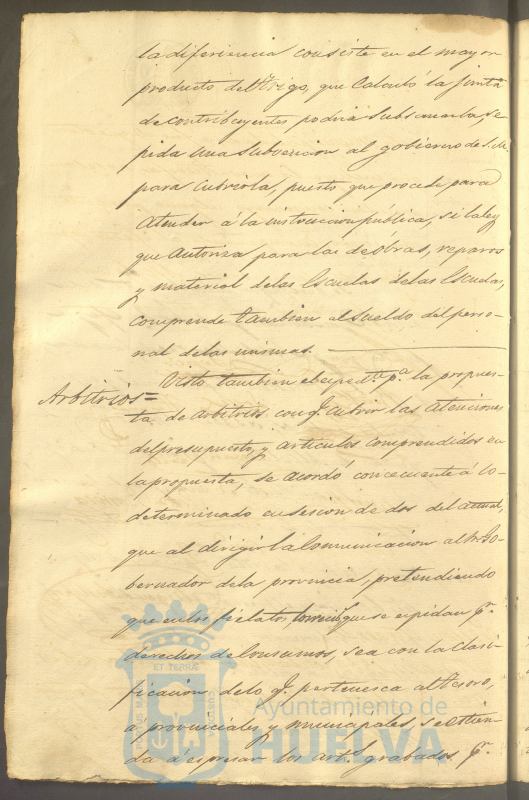 la diferiencia consiste en el mayor
producto del trigo, que calculó la Junta
de contribuyentes podria subsanarla, se
pida una subvencion al gobierno de S. M.
para cubrirla, puesto que procede para
atender á la instruccion pública, si la ley
que autoriza para las de obras, reparos
y material de las Escuelas de las Escuelas,
comprende tambien al sueldo del perso-
nal de las mismas.
Arbitrios=
Visto tambien el exped.te p.a la propues-
ta de arbitrios con q.e cubrir las atenciones
del presupuesto, y articulos comprendidos en
la propuesta, se acordó concecuente á lo
determinado en sesion de dos del actual,
que al dirigir la comunicacion al Sr. Go-
bernador de la provincia, pretendiendo
que en los fielatos, que se expidan p.r
derechos de Consumos, sea con la clasi-
ficacion, de lo q.e pertenesca al Tesoro,
a provinciales y municipales, se estien-
da á espresar los art.s grabados p.r
ET TERRÆ
Ayuntamiento de
HUELVA